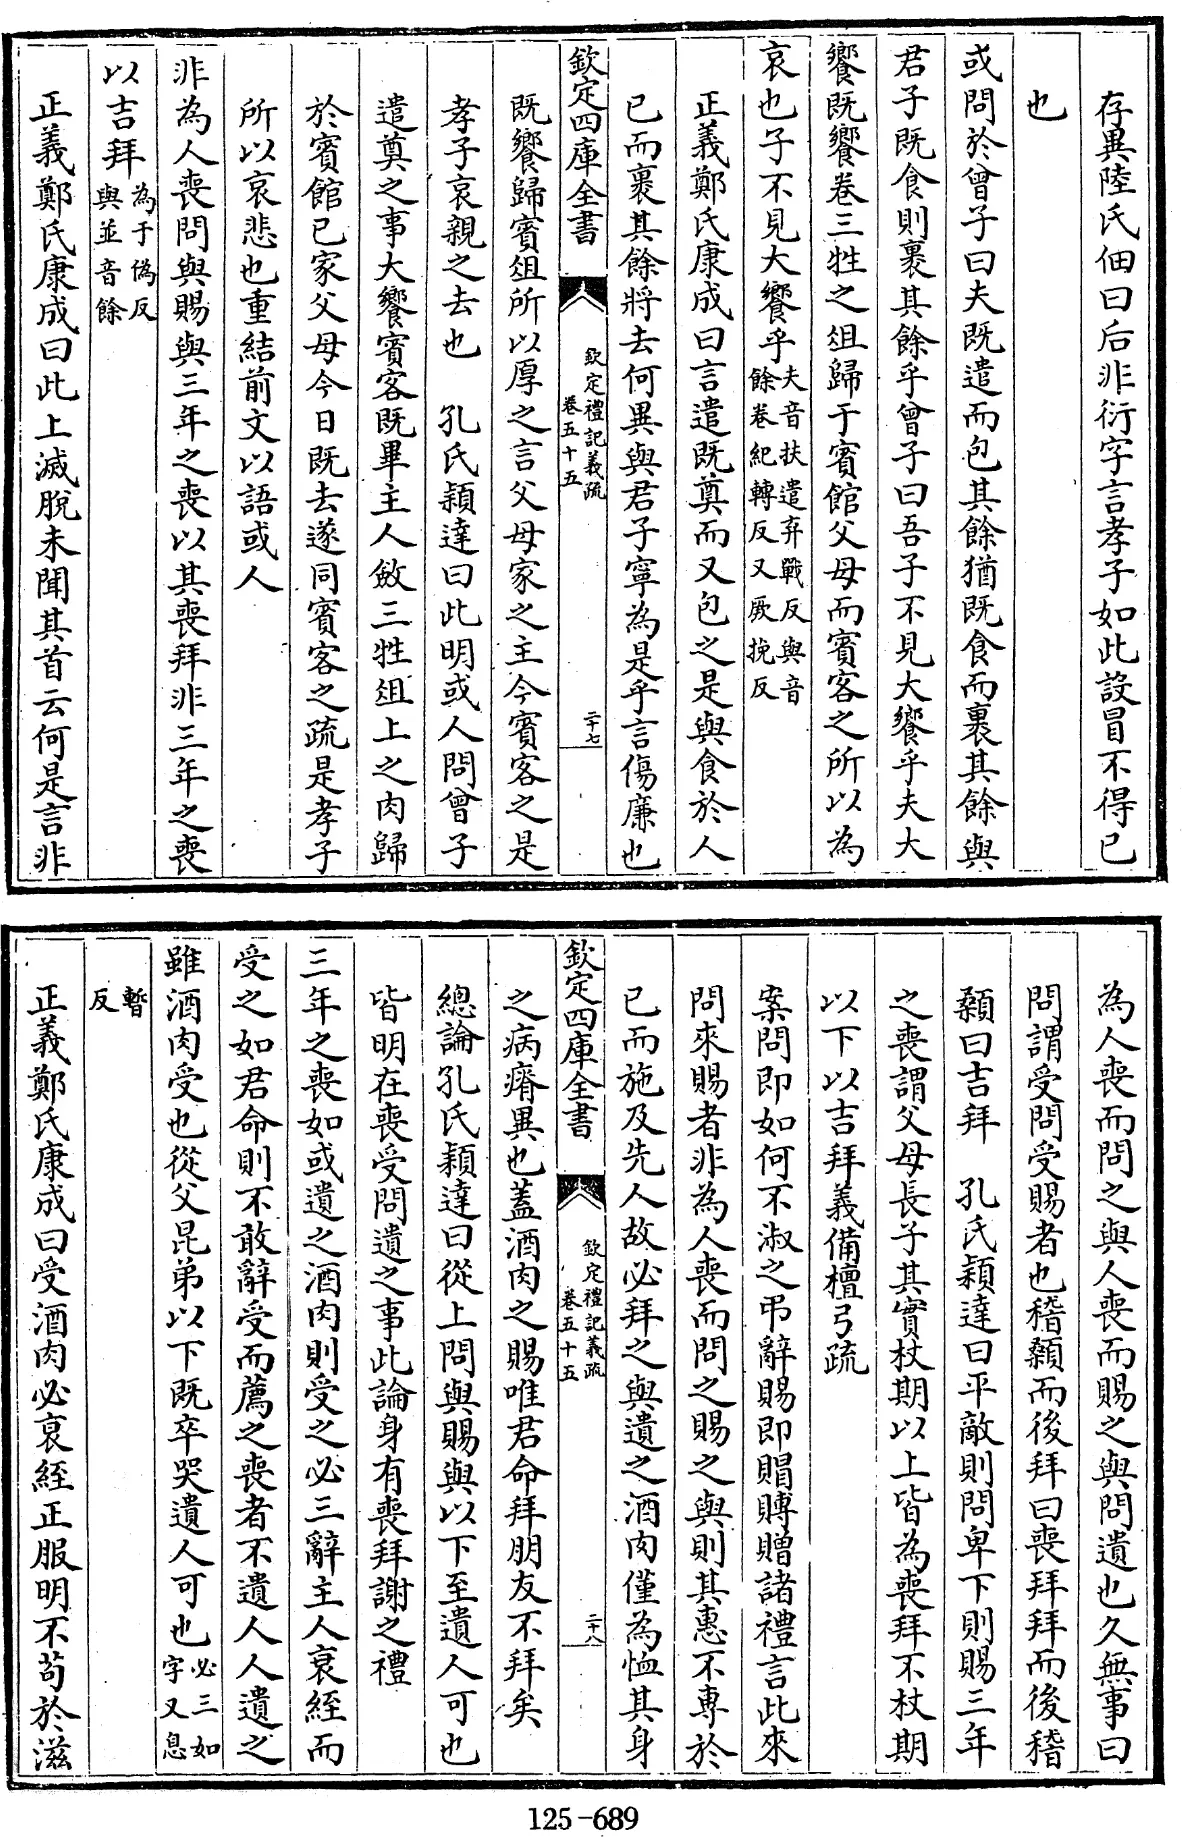 存異陸氏佃曰后非衍字言孝子如此設冒不得已
也
或問於曾子曰夫既遣而包其餘猶既食而裹其餘與
君子既食則裹其餘乎曾子曰吾子不見大饗乎夫大
饗既饗卷三牲之俎歸于賓館父母而賓客之所以為
哀也子不見大饗乎夫音扶遣弃戰反與音
餘卷紀轉反又厥挽反
正義鄭氏康成曰言遣既奠而又包之是與食於人
已而裹其餘將去何異與君子寧為是乎言傷廉也
欽定四庫全書
欽定禮記義疏
卷五十五
二十七
既饗歸賓俎所以厚之言父母家之主今賓客之是
孝子哀親之去也 孔氏穎達曰此明或人問曾子
遣奠之事大饗賓客既畢主人斂三牲俎上之肉歸
於賓館已家父母今日既去遂同賓客之疏是孝子
所以哀悲也重結前文以語或人
非為人喪問與賜與三年之喪以其喪拜非三年之喪
以吉拜為于偽反
與並音餘
正義鄭氏康成曰此上滅脫未聞其首云何是言非
為人喪而問之與人喪而賜之與問遺也久無事曰
問謂受問受賜者也稽顙而後拜曰喪拜拜而後稽
顙曰吉拜 孔氏穎達曰平敵則問卑下則賜三年
之喪謂父母長子其實杖期以上皆為喪拜不杖期
以下以吉拜義備檀弓疏
案問即如何不淑之弔辭賜即賵賻贈諸禮言此來
問來賜者非為人喪而問之賜之與則其惠不專於
已而施及先人故必拜之與遺之酒肉僅為恤其身
欽定四庫全書
欽定禮記義疏
卷五十五
二十八
之病瘠異也蓋酒肉之賜唯君命拜朋友不拜矣
總論孔氏穎達曰從上問與賜與以下至遺人可也
皆明在喪受問遺之事此論身有喪拜謝之禮
三年之喪如或遺之酒肉則受之必三辭主人衰絰而
受之如君命則不敢辭受而薦之喪者不遺人人遺之
雖酒肉受也從父昆弟以下既卒哭遺人可也必三如
字又息
暫
反
正義鄭氏康成曰受酒肉必衰絰正服明不苟於滋
125-689